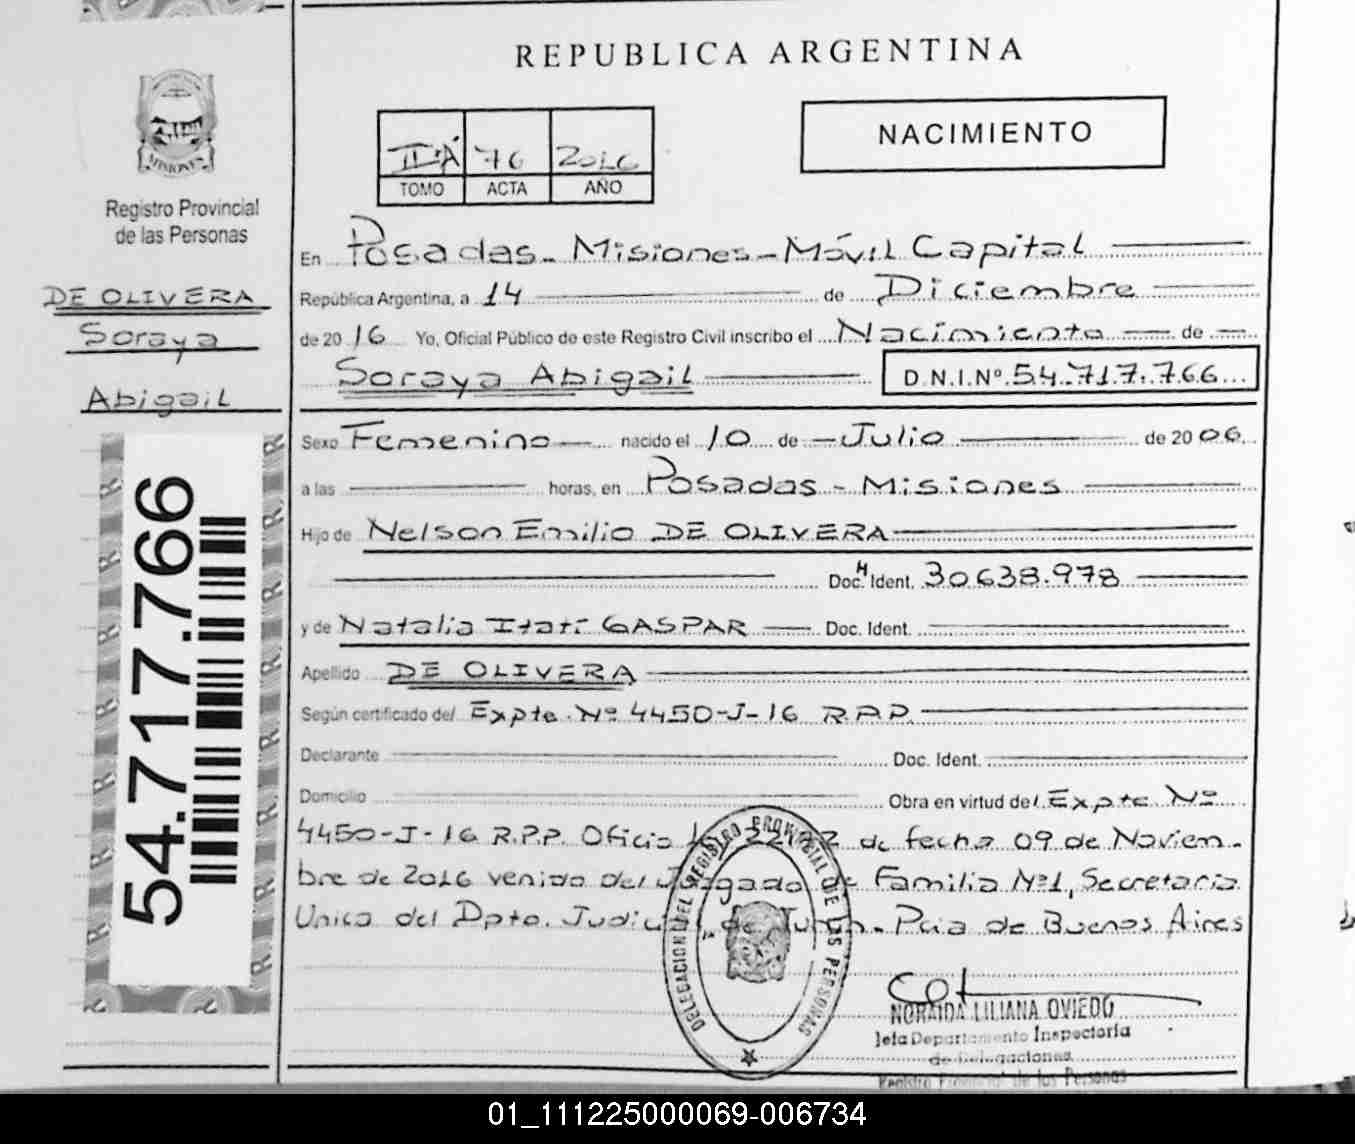 REPUBLICA ARGENTINA
NACIMIENTO
IIºA 76 2016
TOMO ACTA AÑO
MISIONES
Registro Provincial
de las Personas
DE OLIVERA
Soraya
Abigail
54.717.766
En Posadas - Misiones - Móvil Capital
República Argentina, a 14 de Diciembre
de 2016 Yo, Oficial Público de este Registro Civil inscribo el Nacimiento de
Soraya Abigail D.N.I.Nº 54.717.766
Sexo Femenino nacido el 10 de Julio de 2006
a las horas, en Posadas - Misiones
Hijo de Nelson Emilio DE OLIVERA
Doc. M Ident. 30.638.978
y de Natalia Itatí GASPAR Doc. Ident.
Apellido DE OLIVERA
Según certificado del Expte. Nº 4450-J-16 R.P.P.
Declarante Doc. Ident.
Domicilio Obra en virtud del Expte Nº
4450-J-16 R.P.P. Oficio de fecha 09 de Noviem-
bre de 2016 venido del Juzgado de Familia Nº1, Secretaria
Unica del Dpto. Judicial de Junin - Pcia de Buenos Aires
DELEGACION DEL REGISTRO PROVINCIAL DE LAS PERSONAS
NORAIDA LILIANA OVIEDO
Jefa Departamento Inspectoría
de Delegaciones
Registro Provincial de las Personas
01_111225000069-006734